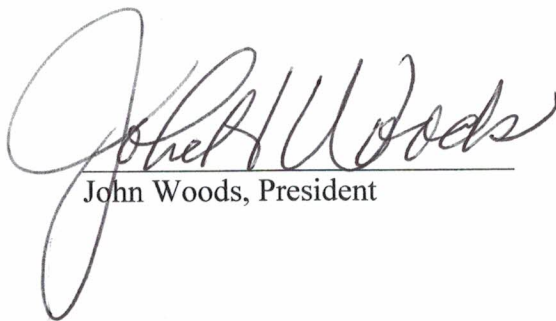 John H Woods
John Woods, President